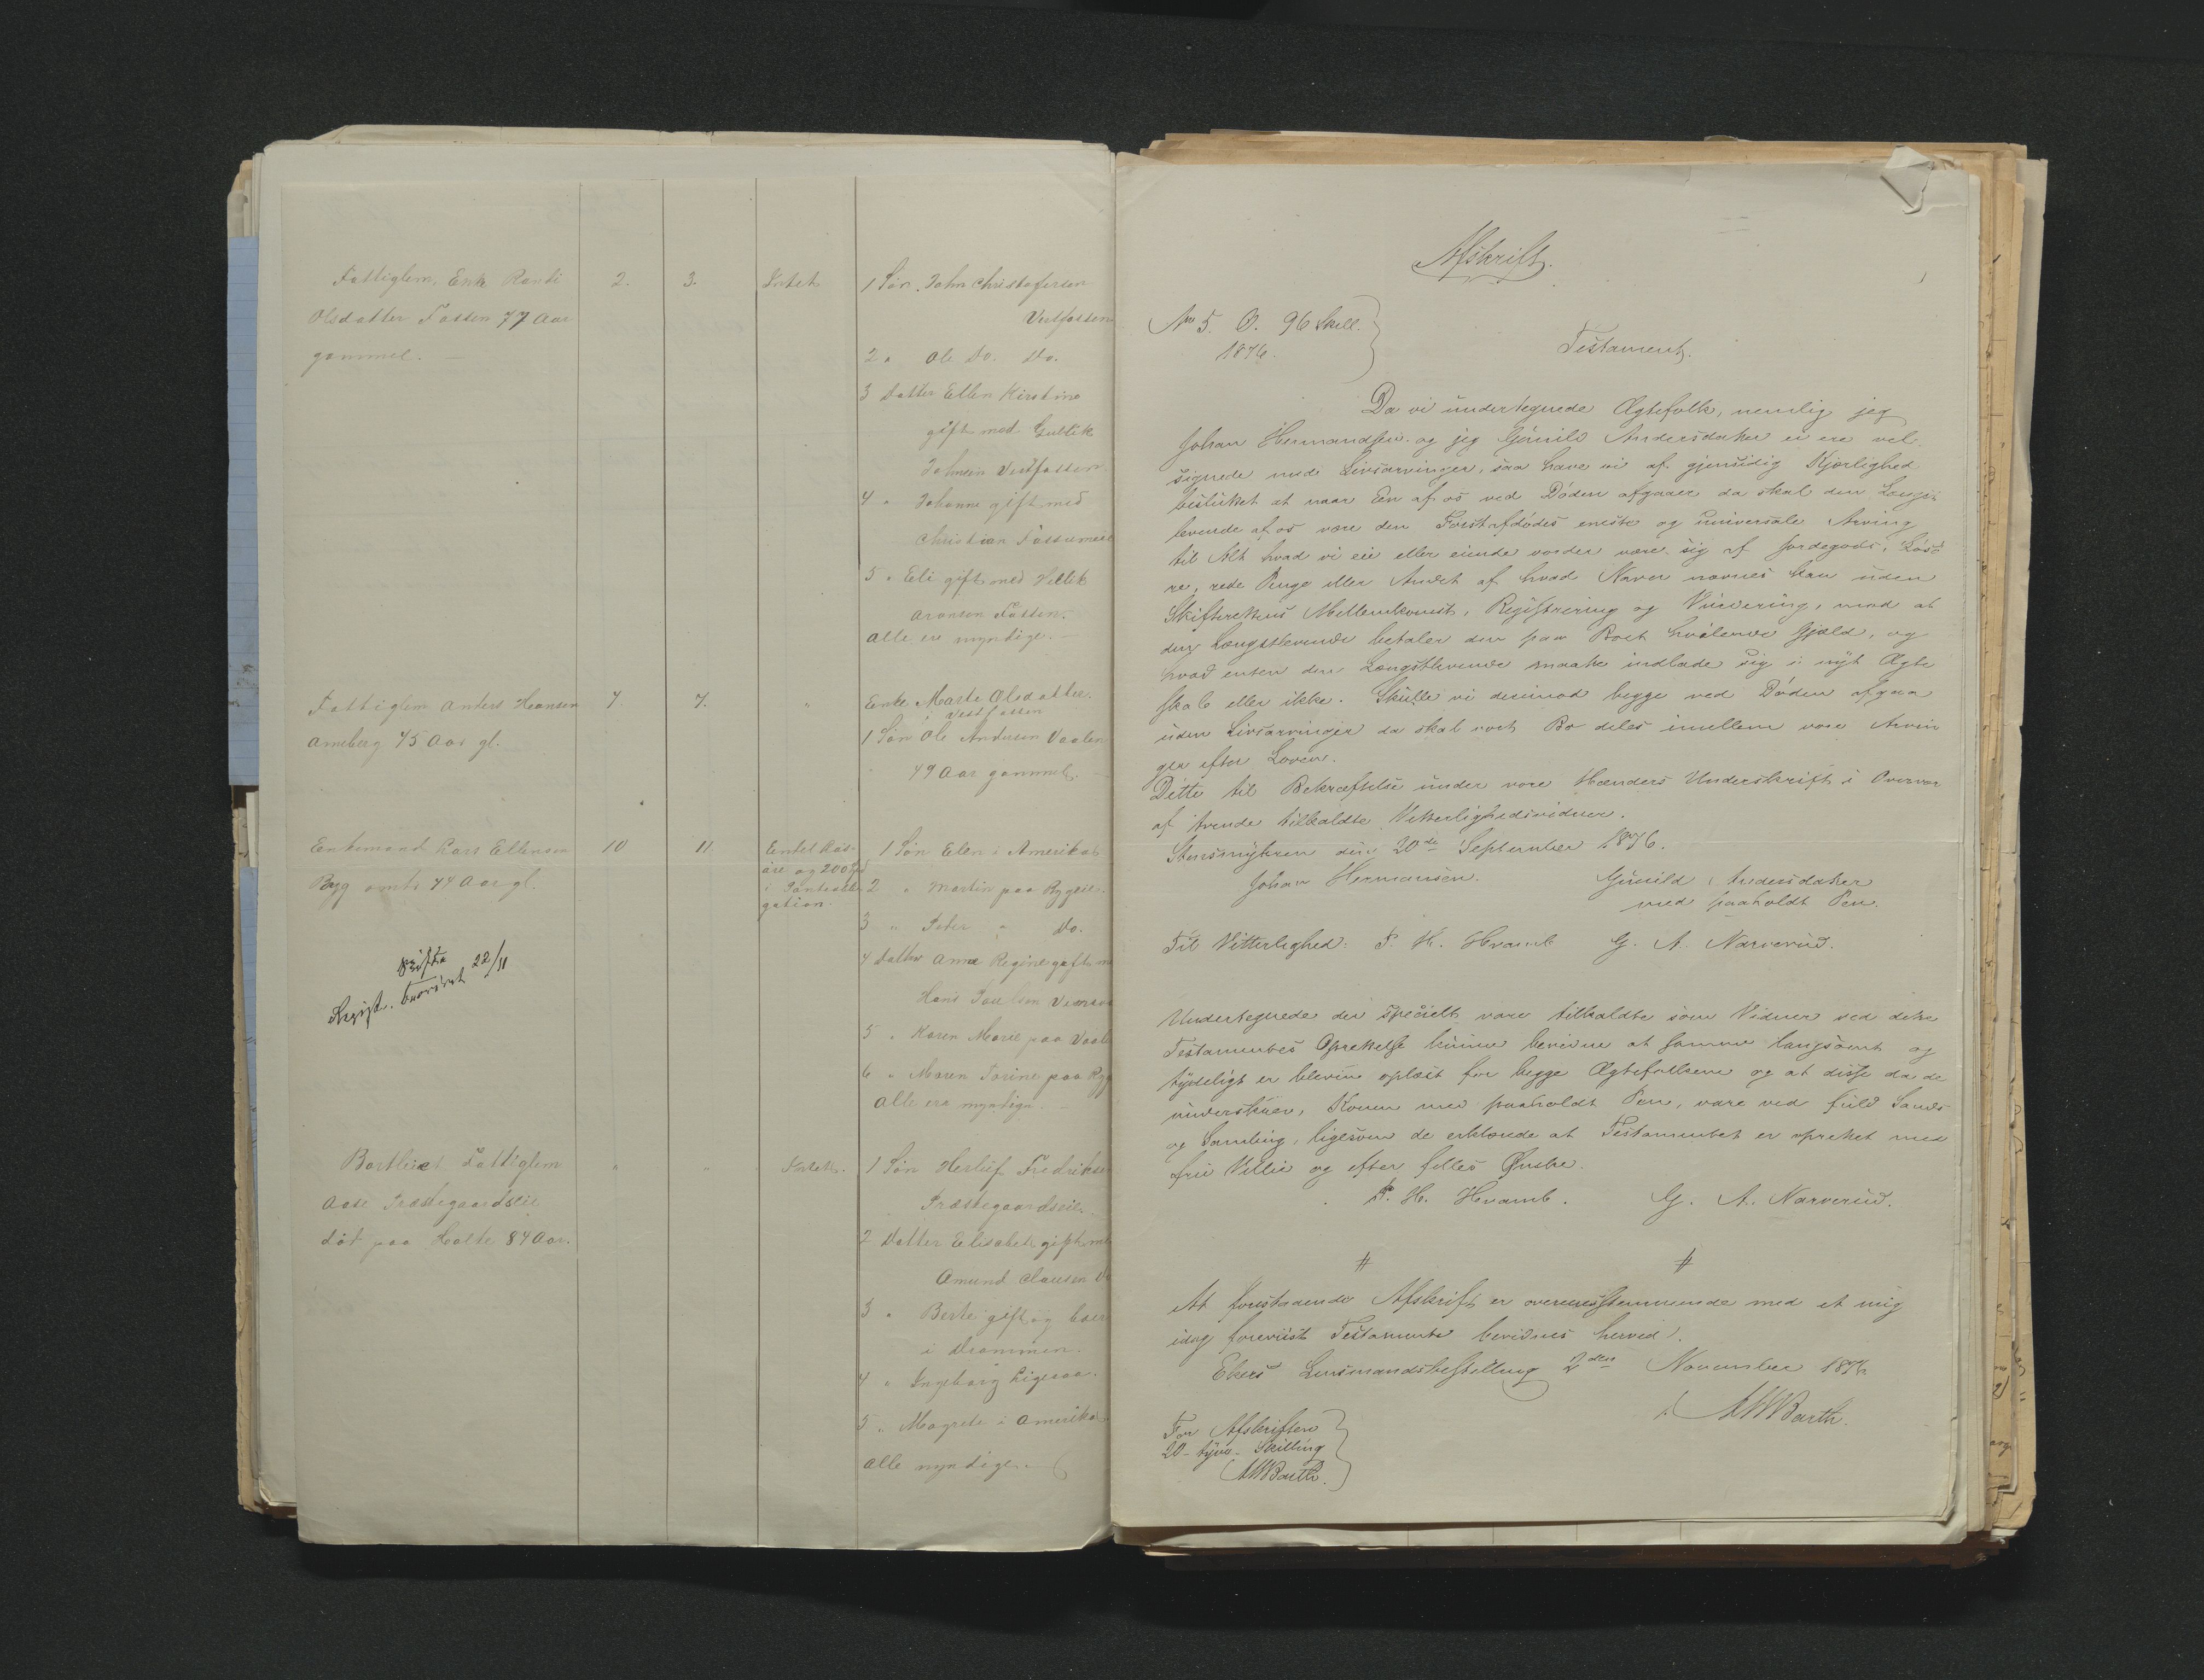 Fattiglem, Enke Randi
Olsdatter Fossen 77 Aar
gammel. —
2.
3.
Intet
1 Søn John Christofersen
Vestfossen
2 " Ole Do. Do.
3 Datter Ellen Kirstine
gift med Gullik
Johnsen Vestfossen
4 " Johanne gift med
Christian Fossumeie
5 " Eli gift med Hellik
Aronsen Fossen.
Alle ere myndige. —
Fattiglem Anders Hansen
Arneberg 75 Aar gl.
7.
7.
"
Enke Marte Olsdatter
i Vestfossen
1 Søn Ole Andersen Vaalen
49 Aar gammel. —
Enkemand Lars Ellensen
Byg omtr 74 Aar gl.
10
11
Enkel Løs-
øre og 200 Spd
i Pantobli-
gation
1 Søn Elen i Amerika
2 " Martin paa Bygeie
3 " Peter " Do.
4 Datter Anne Regine gift m
Hans Paulsen
5 " Karen Marie paa Vaale
6 " Maren Torine paa Byg
Alle ere myndige. —
Skifte
Regist. beordret 22/11
Bortleiet Fattiglem
Aase Præstegaardseie
død paa Holte 84 Aar.
"
"
Intet.
1 Søn Herluf Fredrikse
Præstegaardseie.
2 Datter Elisabeth gift me
Amund Clausen Do
3 " Berte gift og boer
i Drammen.
4 " Ingeborg ligesaa.
5 " Magrete i Amerika
Alle myndige. —
Afskrift.
No 5. O. 96 Skill.
1876.
Testament.
Da vi undertegnede Ægtefolk, nemlig jeg
Johan Hermandsen og jeg Gunild Andersdatter ei ere vel
signede med Livsarvinger, saa have vi af gjensidig Kjærlighed
besluttet at naar En af os ved Døden afgaaer da skal den Længst
levende af os være den Førstafdødes eneste og universale Arving
til Alt hvad vi eie eller eiende vorder være sig af Jordegods, Løsø
re, rede Penge eller Andet af hvad Navn nævnes kan uden
Skifterettens Mellemkomst, Registrering og Vurdering, mod at
den Længstlevende betaler den paa Boet hvilende Gjæld, og
hvad enten den Længstlevende maatte indlade sig i nyt Ægte
skab eller ikke. Skulle vi derimod begge ved Døden afgaa
uden Livsarvinger da skal vort Bo deles imellem vore Arvin
ger efter Loven.
Dette til Bekræftelse under vore Hænders Underskrift i Overvær
af tvende tilkaldte Vitterlighedsvidner.
den 20de September 1876.
Johan Hermansen. Gunild Andersdatter
med paaholdt Pen.
Til Vitterlighed: P. H. Hvamb G. A. Narverud.
Undertegnede der specielt vare tilkaldte som Vidner ved dette
Testamentes Oprettelse kunne bevidne at samme langsomt og
tydeligt er bleven oplæst for begge Ægtefolkene og at disse da de
underskrev, Konen med paaholdt Pen, vare ved fuld Sands
og Samling, ligesom de erklærede at Testamentet er oprettet med
frie Villie og efter fælles Ønske.
P. H. Hvamb. G. A. Narverud.
# #
At forestaaende Afskrift er overensstemmende med et mig
idag foreviist Testamente bevidnes herved.
Ekers Lensmandsbestilling 2den November 1876
Barth.
For Afskriften
20 - tyve - Skilling
Barth.